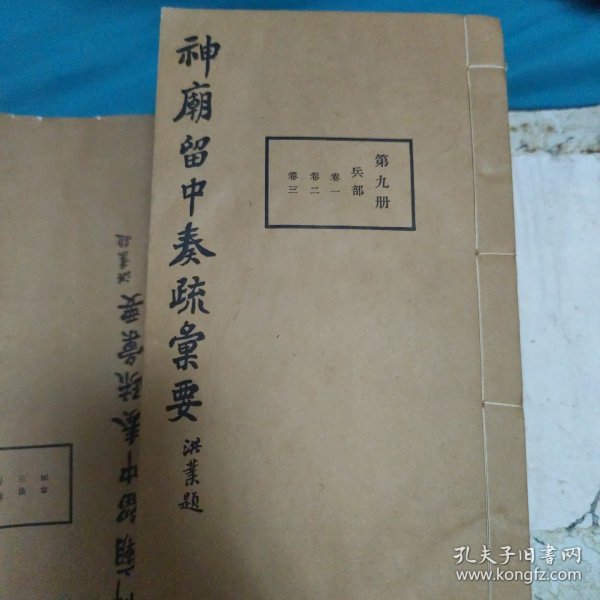 神廟留中奏疏彙要
洪業題
第九册
兵部
卷一
卷二
卷三
神廟留中奏疏彙要
洪業題
卷三
卷四
孔夫子旧书网
www.kongfz.com